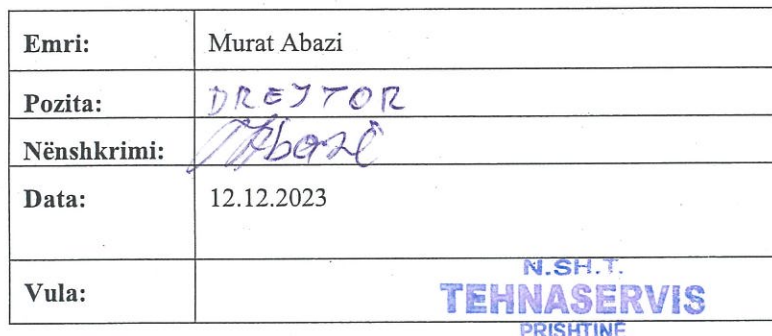 Emri: Murat Abazi
Pozita: DREJTOR
Nënshkrimi: Abazi
Data: 12.12.2023
Vula: N.SH.T.
TEHNASERVIS
PRISHTINË